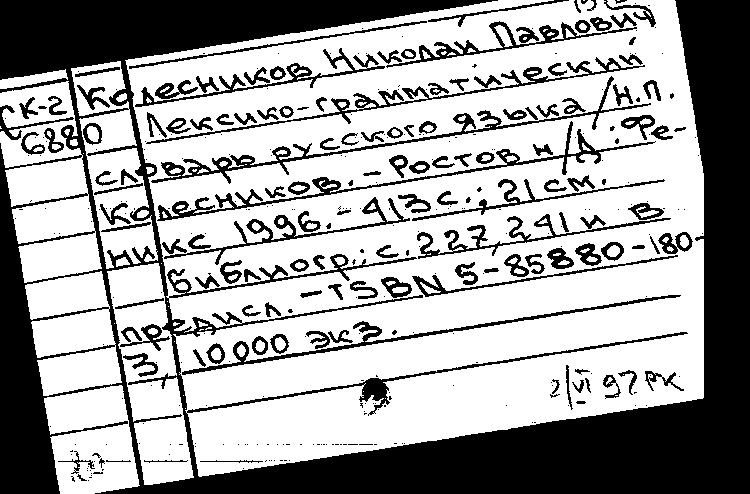 Колесников, Николай Павлович
СК-2 Лексико-грамматический
6880 словарь русского языка / Н.П.
Колесников. - Ростов н/Д : Фе-
никс, 1996. - 413 с.; 21 см.
Библиогр.: с. 227, 241 и в
предисл. - ISBN 5-85880-180-
3, 10000 экз.
2/VI 97 РК